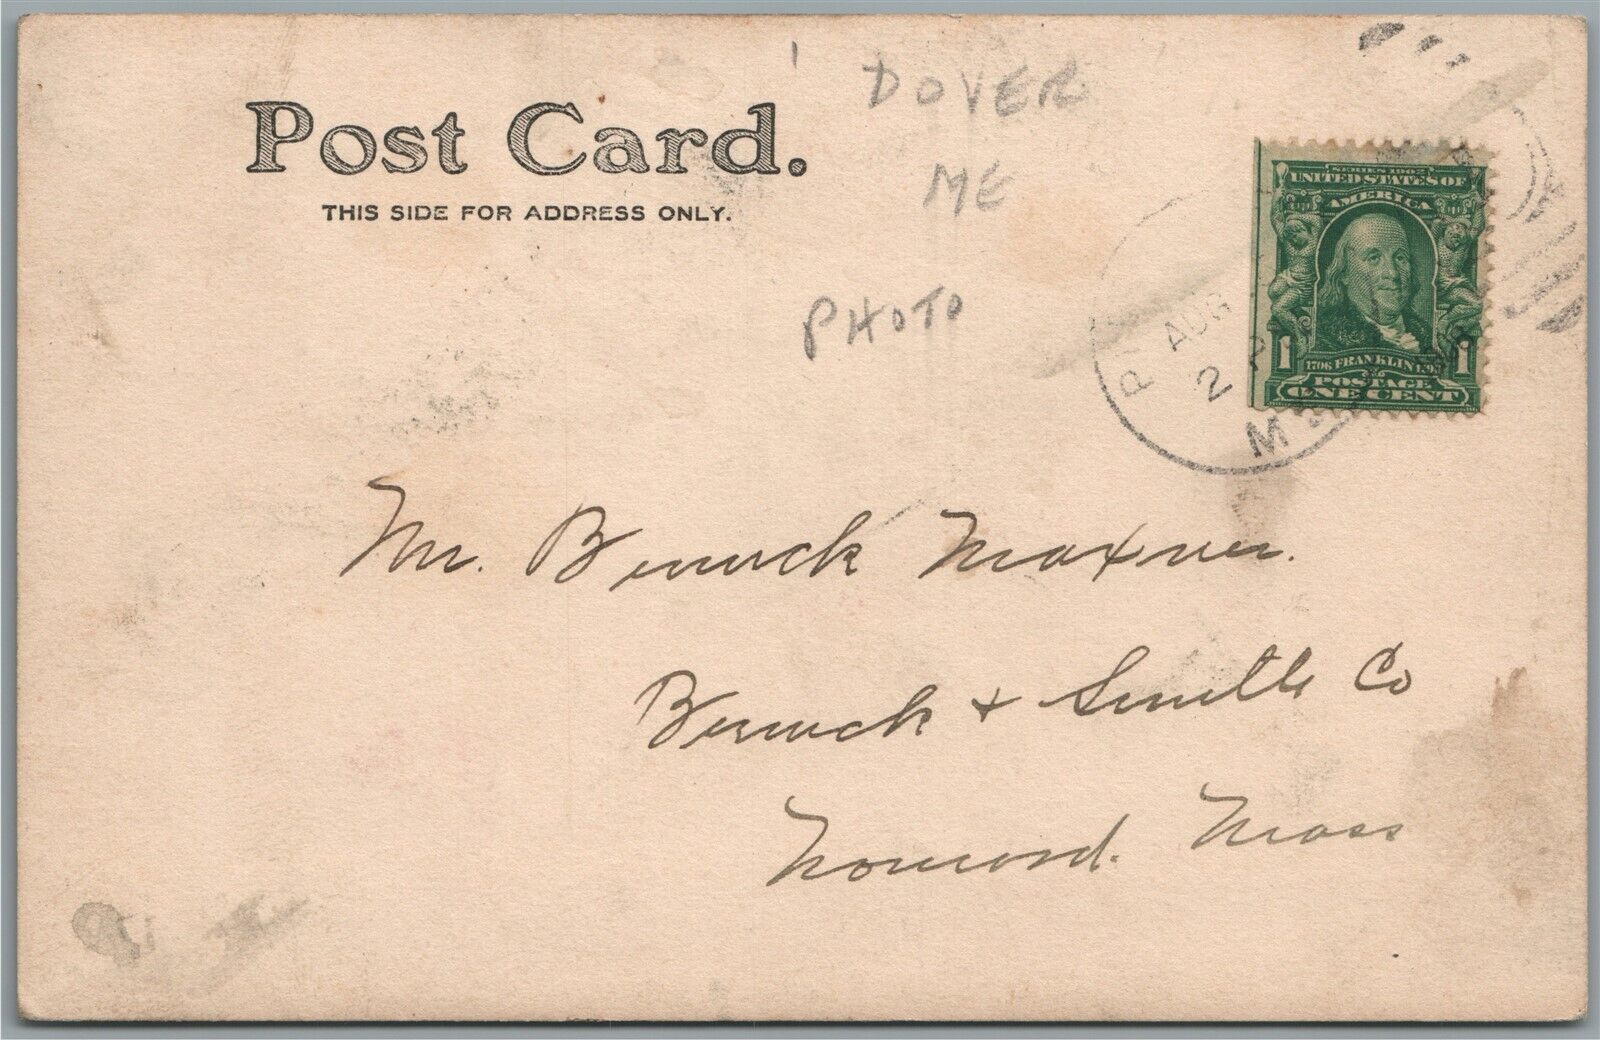 DOVER
Post Card.
ME
THIS SIDE FOR ADDRESS ONLY.
PHOTO
SERIES 1902
UNITED STATES OF
AMERICA
1 1
1706 FRANKLIN 1790
POSTAGE
ONE CENT
AUG
2
Mr. Berwick Maxner.
Berwick + Smith Co
Norwood. Mass